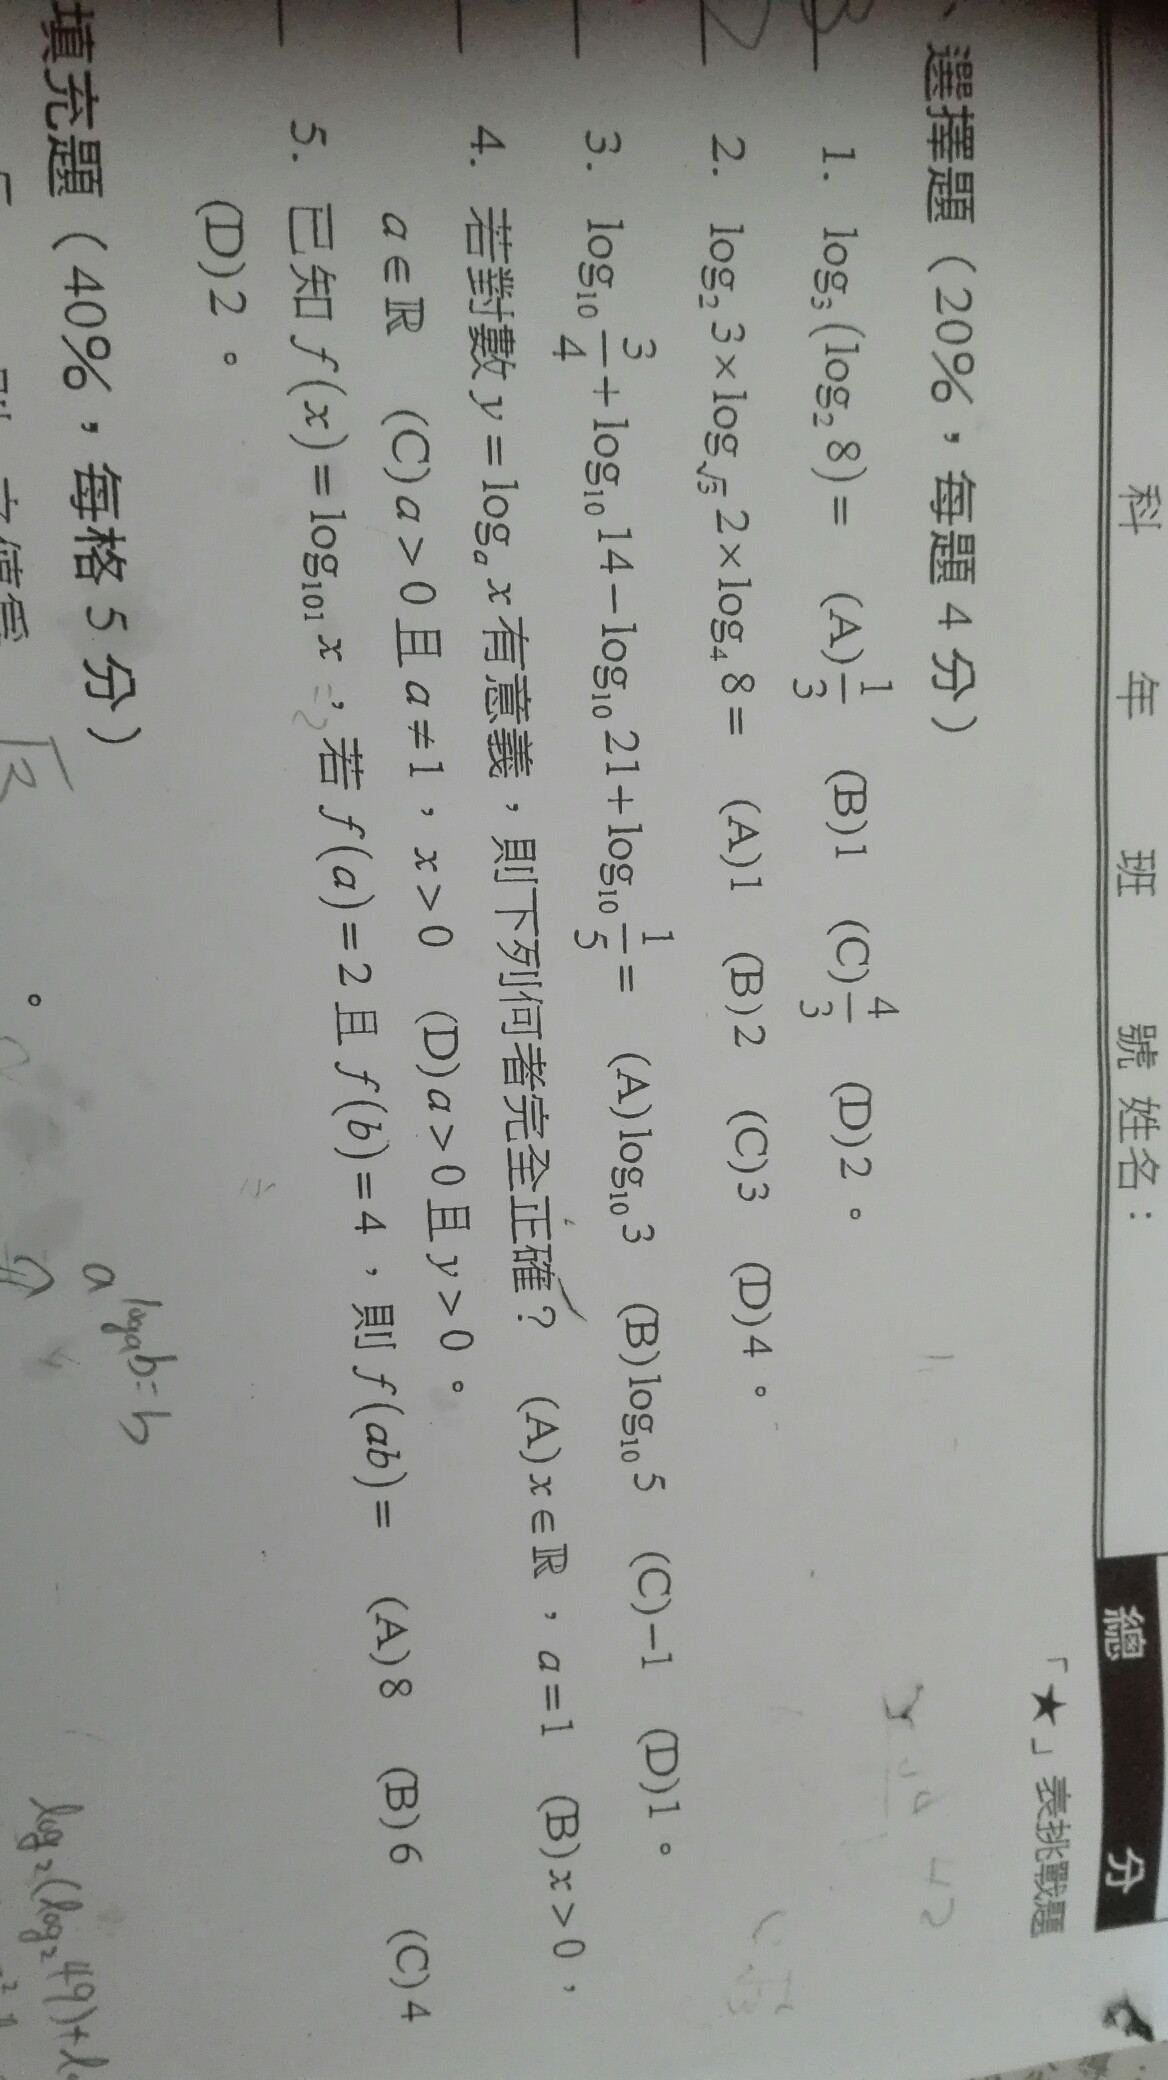 科 年 班 號 姓名： 總 分
「★」表挑戰題
、選擇題（20％，每題 4 分）
B 1. log₃(log₂8)= (A)1/3 (B)1 (C)4/3 (D)2。
D 2. log₂3×log_√3 2×log₄8= (A)1 (B)2 (C)3 (D)4。
3. log₁₀ 3/4+log₁₀14−log₁₀21+log₁₀ 1/5= (A)log₁₀3 (B)log₁₀5 (C)−1 (D)1。
4. 若對數 y=logₐx 有意義，則下列何者完全正確？ (A)x∈ℝ，a=1 (B)x>0，
a∈ℝ (C)a>0 且 a≠1，x>0 (D)a>0 且 y>0。
5. 已知 f(x)=log₁₀₁x，若 f(a)=2 且 f(b)=4，則 f(ab)= (A)8 (B)6 (C)4
(D)2。
a^logₐb=b
填充題（40％，每格 5 分）
log₂(log₂49)+